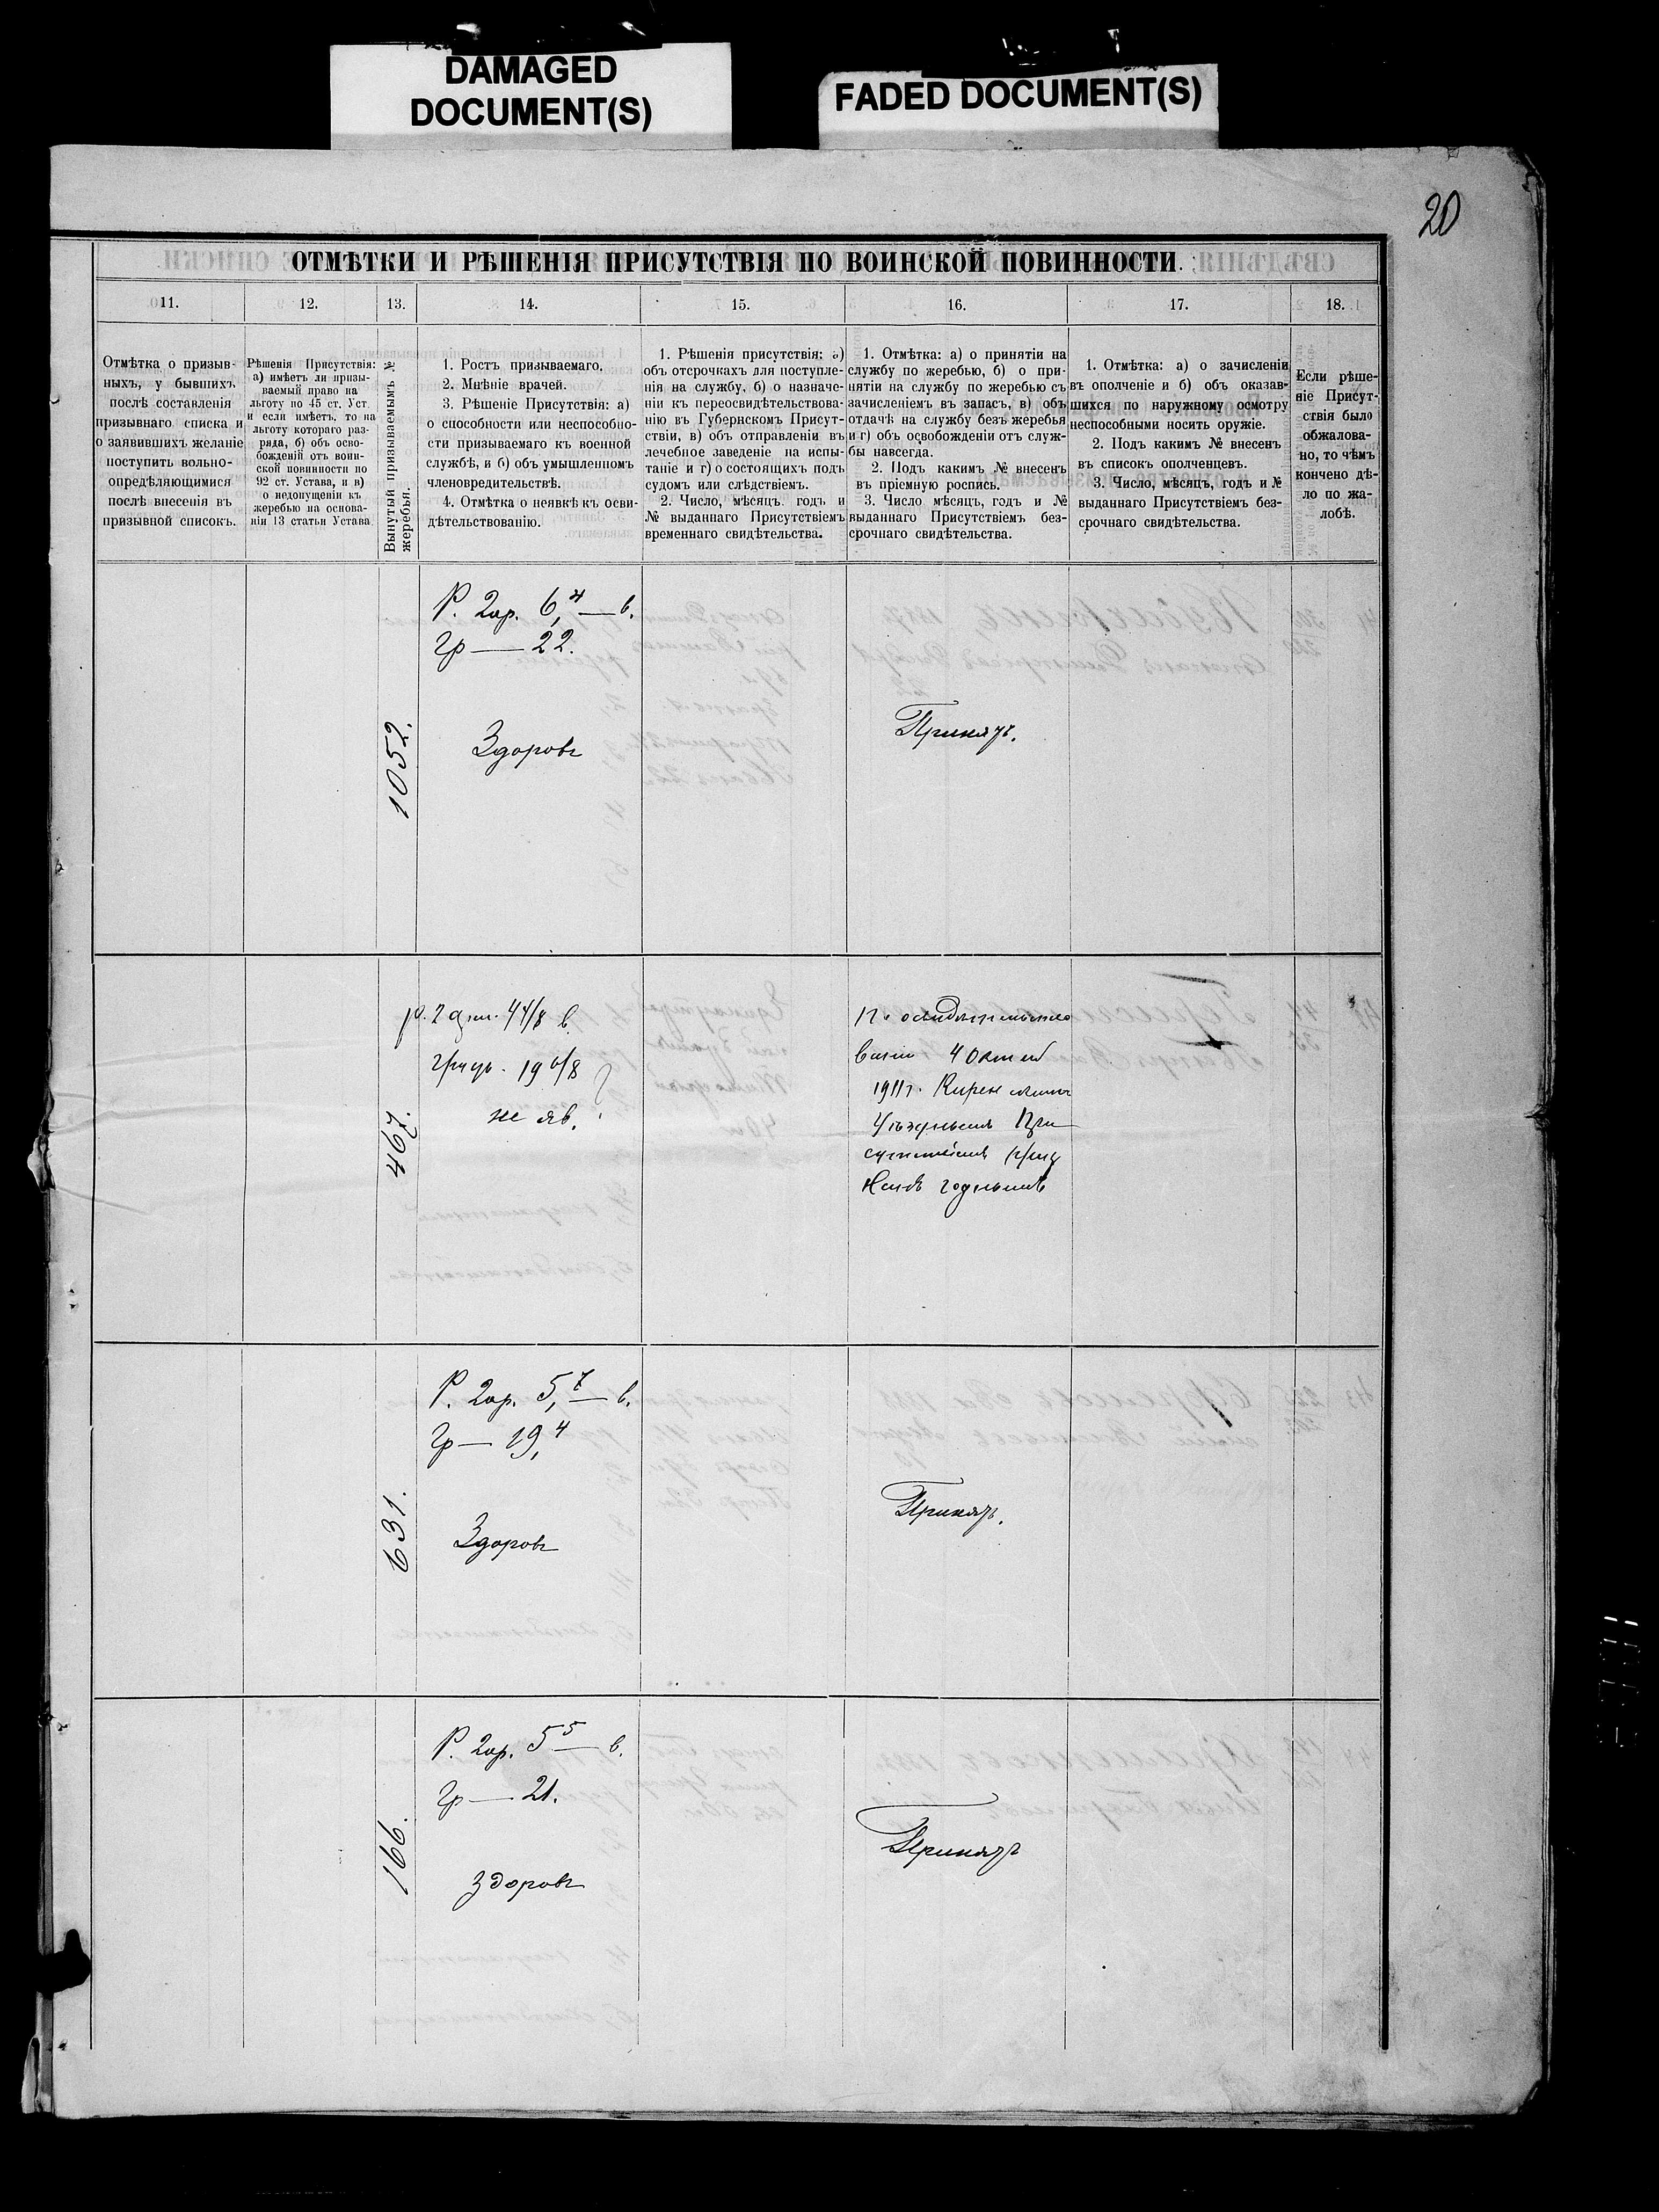 DAMAGED
DOCUMENT(S)
FADED DOCUMENT(S)
20
ОТМѢТКИ И РѢШЕНІЯ ПРИСУТСТВІЯ ПО ВОИНСКОЙ ПОВИННОСТИ.
11.
12.
13.
14.
15.
16.
17.
18.
Отмѣтка о призыв-
ныхъ, у бывшихъ
послѣ составленія
призывнаго списка и
о заявившихъ желаніе
поступить вольно-
опредѣляющимися
послѣ внесенія въ
призывной списокъ.
Рѣшенія Присутствія:
а) имѣетъ ли призы-
ваемый право на
льготу по 45 ст. Уст.
и если имѣетъ, то на
льготу котораго раз-
ряда, б) объ осво-
божденій отъ воин-
ской повинности по
92 ст. Устава, и в)
о недопущеніи къ
жеребью на основа-
ніи 13 статьи Устава
Вынутый призываемымъ №
жеребья.
1. Ростъ призываемаго.
2. Мнѣніе врачей.
3. Рѣшеніе Присутствія: а)
о способности или неспособно-
сти призываемаго къ военной
службѣ, и б) объ умышленномъ
членовредительствѣ.
4. Отмѣтка о неявкѣ къ осви-
дѣтельствованію.
1. Рѣшенія присутствія: а)
объ отсрочкахъ для поступле-
нія на службу, б) о назначе-
ніи къ переосвидѣтельствова-
нію въ Губернскомъ Присут-
ствіи, в) объ отправленіи въ
лечебное заведеніе на испы-
таніе и г) о состоящихъ подъ
судомъ или слѣдствіемъ.
2. Число, мѣсяцъ, годъ и
№ выданнаго Присутствіемъ
временнаго свидѣтельства.
1. Отмѣтка: а) о принятіи на
службу по жеребью, б) о при-
нятіи на службу по жеребью съ
зачисленіемъ въ запасъ, в) объ
отдачѣ на службу безъ жеребья
и г) объ освобожденіи отъ служ-
бы навсегда.
2. Подъ какимъ № внесенъ
въ пріемную роспись.
3. Число мѣсяцъ, годъ и №
выданнаго Присутствіемъ без-
срочнаго свидѣтельства.
1. Отмѣтка: а) о зачисленіи
въ ополченіе и б) объ оказав-
шихся по наружному осмотру
неспособными носить оружіе.
2. Подъ какимъ № внесенъ
въ списокъ ополченцевъ.
3. Число, мѣсяцъ, годъ и №
выданнаго Присутствіемъ без-
срочнаго свидѣтельства.
Если рѣше-
ніе Присут-
ствія было
обжалова-
но, то чѣмъ
кончено дѣ-
ло по жа-
лобѣ.
1052.
Р. 2ар. 6,4 — в.
Гр — 22.
Здоровъ
Принятъ.
467.
р. 2 арш. 4 4/8 в.
грудь. 19 6/8
не яв. ?
По освидѣтельство
ваніи 4 октяб
1911 г. Кирен
Уѣзднымъ При
сутствіемъ приз
нанъ годнымъ
631.
Р. 2ар. 5,7 — в.
Гр — 19,4
Здоровъ
Принятъ.
166.
Р. 2ар. 5 5 — в.
Гр — 21.
здоровъ
Принятъ